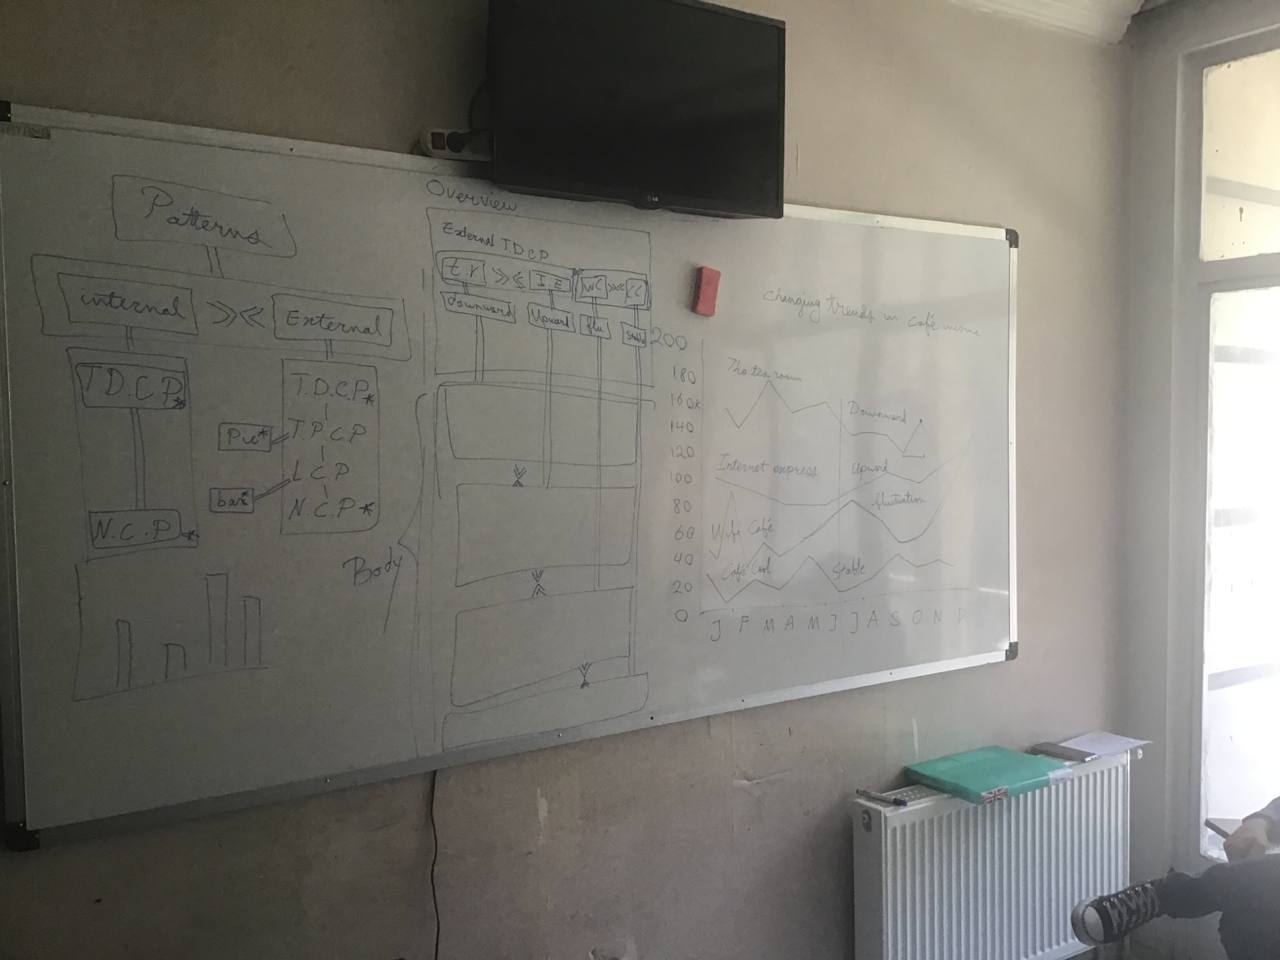 Patterns
internal >>< External
T.D.C.P*
N.C.P*
T.D.C.P*
Pie* T.P.C.P
bar* L C P
N.C.P*
Overview
External T D C P
t.r >>< I E WC >><< CC
Downward Upward flu Stable
Body
Changing trends in café income
200
180
160k
140
120
100
80
60
40
20
0
The tea room
Downward
Internet express
Upward
fluctuation
Wifi Café
Café Cool
Stable
J F M A M J J A S O N D
LG